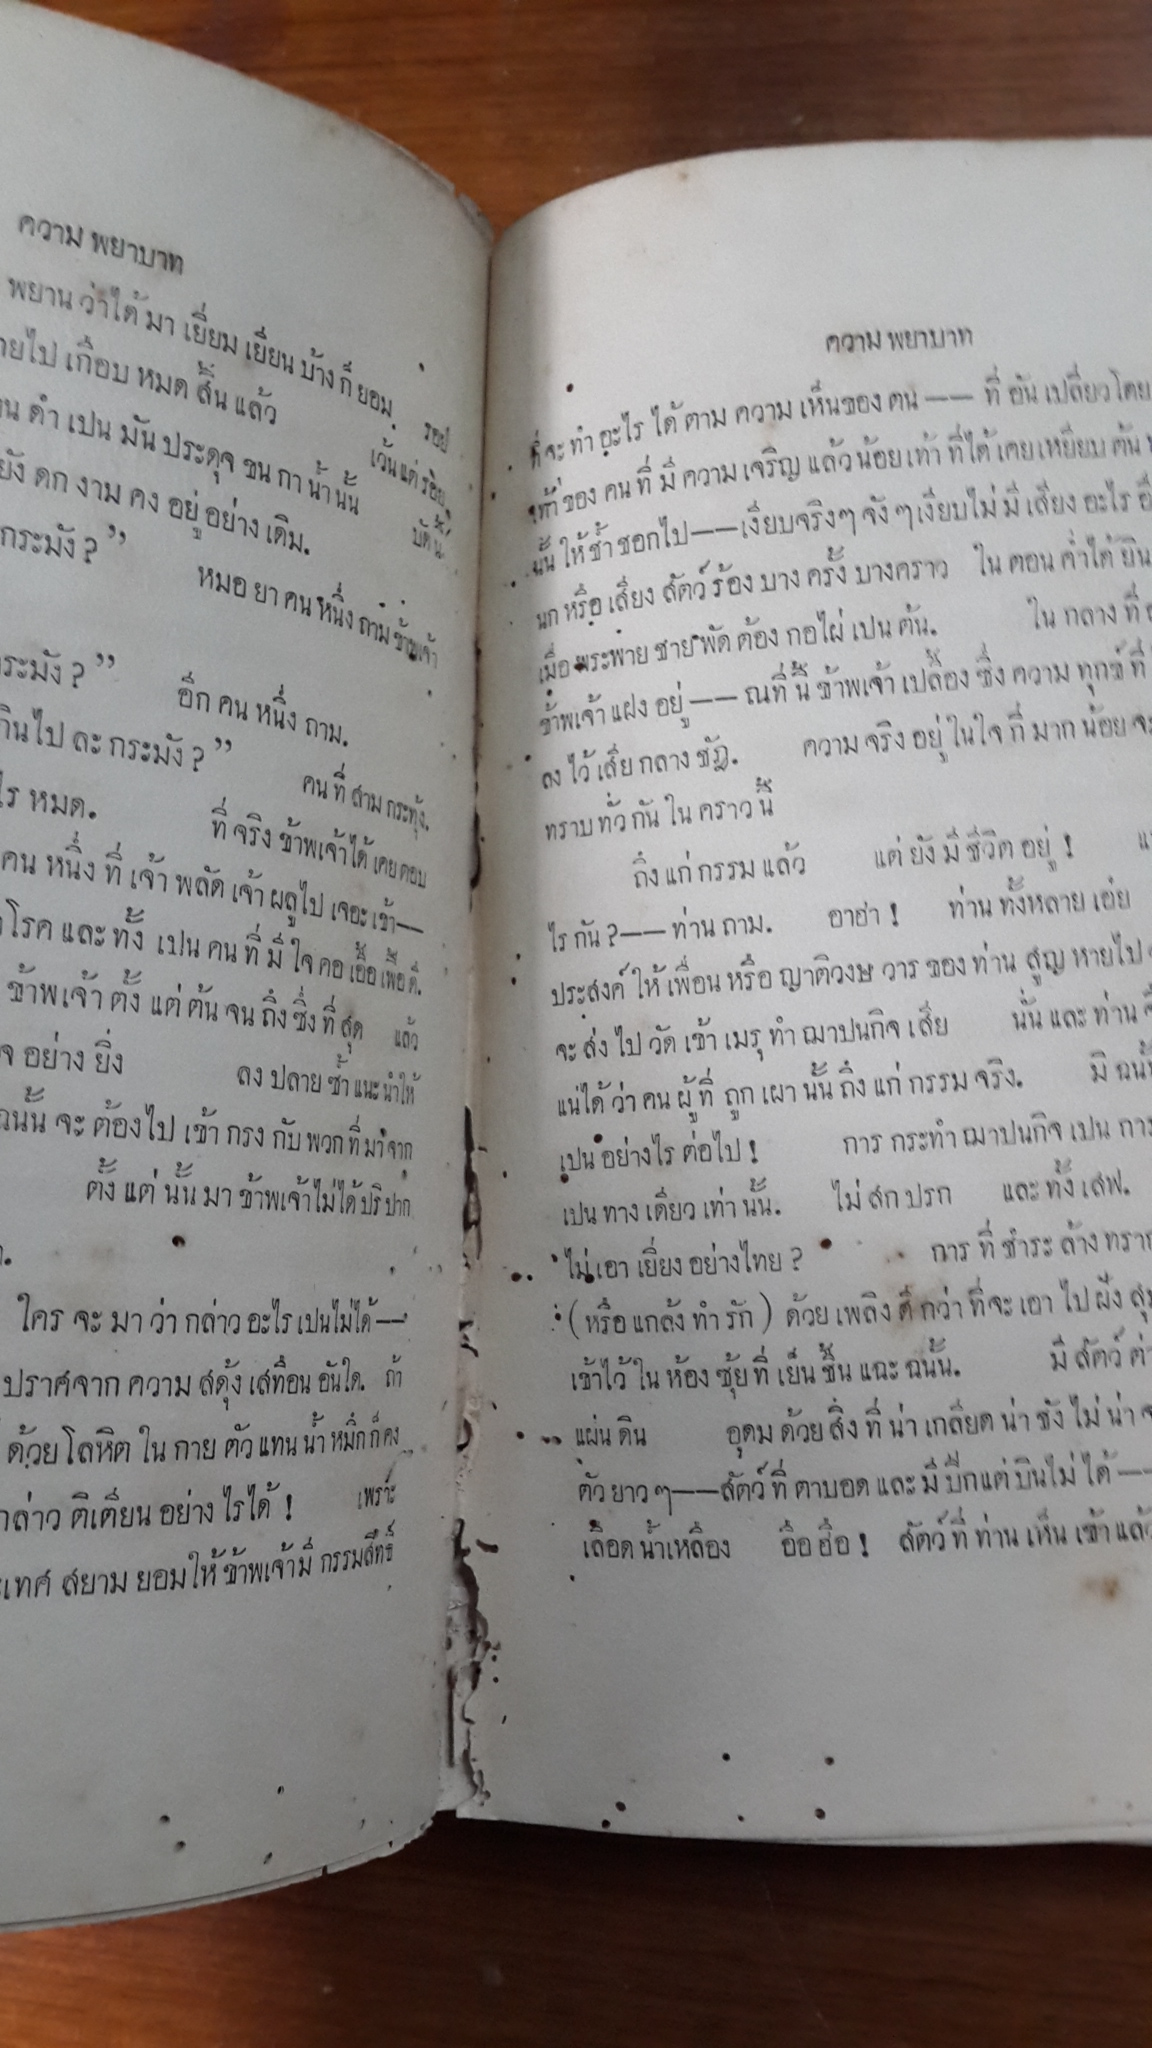 ความ พยาบาท
พยาน ว่าได้ มา เยี่ยม เยียน บ้าง ก็ ยอม
ายไป เกือบ หมด สิ้น แล้ว รอย
น ดำ เปน มัน ประดุจ ขน กา น้ำ นั้น เว้น แต่ ร้อย
ยัง ดก งาม คง อยู่ อย่าง เดิม. บัดนี้
กระมัง ? ” หมอ ยา คน หนึ่ง ถาม ข้าพเจ้า
กระมัง ? ” อีก คน หนึ่ง ถาม.
กินไป ละ กระมัง ? ” คน ที่ สาม กระทุ้ง.
ไร หมด. ที่ จริง ข้าพเจ้าได้ เคย ตอบ
คน หนึ่ง ที่ เจ้า พลัด เจ้า ผลูไป เจอะ เข้า—
โรค และ ทั้ง เปน คน ที่ มี ใจ คอ เอื้อ เฟื้อ ดี.
ข้าพเจ้า ตั้ง แต่ ต้น จน ถึง ซึ่ง ที่ สุด แล้ว
จ อย่าง ยิ่ง ลง ปลาย ซ้ำ แนะ นำให้
ฉนั้น จะ ต้องไป เข้า กรง กับ พวก ที่ มา จาก
ตั้ง แต่ นั้น มา ข้าพเจ้าไม่ได้ ปริปาก
ใคร จะ มา ว่า กล่าว อะไร เปนไม่ได้—
ปราศจาก ความ สดุ้ง เสทือน อันใด. ถ้า
ด้วย โลหิต ใน กาย ตัว แทน น้ำ หมึก ก็ คง
กล่าว ติเตียน อย่าง ไรได้ ! เพราะ
ะเทศ สยาม ยอมให้ ข้าพเจ้ามี กรรมสิทธิ์
ความ พยาบาท
ที่ จะ ทำ อะไร ได้ ตาม ความ เห็นของ ตน —— ที่ อัน เปลี่ยว โดย
เท้า ของ คน ที่ มี ความ เจริญ แล้ว น้อย เท้า ที่ได้ เคย เหยียบ ต้น
นั้น ให้ ช้ำ ชอกไป——เงียบจริงๆ จังๆ เงียบไม่ มี เสียง อะไร อื
นก หรือ เสียง สัตว์ ร้อง บาง ครั้ง บางคราว ใน ตอน ค่ำได้ ยิน
เมื่อ พระพาย ชาย พัด ต้อง กอไผ่ เปน ต้น. ใน กลาง ที่
ข้าพเจ้า แฝง อยู่ —— ณที่ นี้ ข้าพเจ้า เปลื้อง ซึ่ง ความ ทุกข์ ที่
ลง ไว้ เสีย กลาง ชัฏ. ความ จริง อยู่ ในใจ กี่ มาก น้อย จะ
ทราบ ทั่ว กัน ใน คราว นี้
ถึง แก่ กรรม แล้ว แต่ ยัง มี ชีวิต อยู่ !
ไร กัน ?—— ท่าน ถาม. อาฮา ! ท่าน ทั้งหลาย เอ๋ย
ประสงค์ ให้ เพื่อน หรือ ญาติวงษ วาร ของ ท่าน สูญ หายไป
จะ ส่ง ไป วัด เข้า เมรุ ทำ ฌาปนกิจ เสีย นั่น และ ท่าน จึ
แน่ได้ ว่า คน ผู้ ที่ ถูก เผา นั้น ถึง แก่ กรรม จริง. มิ ฉนั้น
เปน อย่างไร ต่อไป ! การ กระทำ ฌาปนกิจ เปน การ
เปน ทาง เดียว เท่า นั้น. ไม่ สก ปรก และ ทั้ง เสพ.
ไม่ เอา เยี่ยง อย่าง ไทย ? การ ที่ ชำระ ล้าง ทราก
( หรือ แกล้ง ทำ รัก ) ด้วย เพลิง ดี กว่า ที่จะ เอา ไป ฝัง สุม
เข้าไว้ ใน ห้อง ซุ้ย ที่ เย็น ชื้น แฉะ ฉนั้น. มี สัตว์ ต่า
แผ่น ดิน อุดม ด้วย สิ่ง ที่ น่า เกลียด น่า ชัง ไม่ น่า จ
ตัว ยาว ๆ——สัตว์ ที่ ตาบอด และ มี ปีกแต่ บินไม่ ได้ ——
เลือด น้ำเหลือง อือ ฮือ ! สัตว์ ที่ ท่าน เห็น เข้า แล้ว